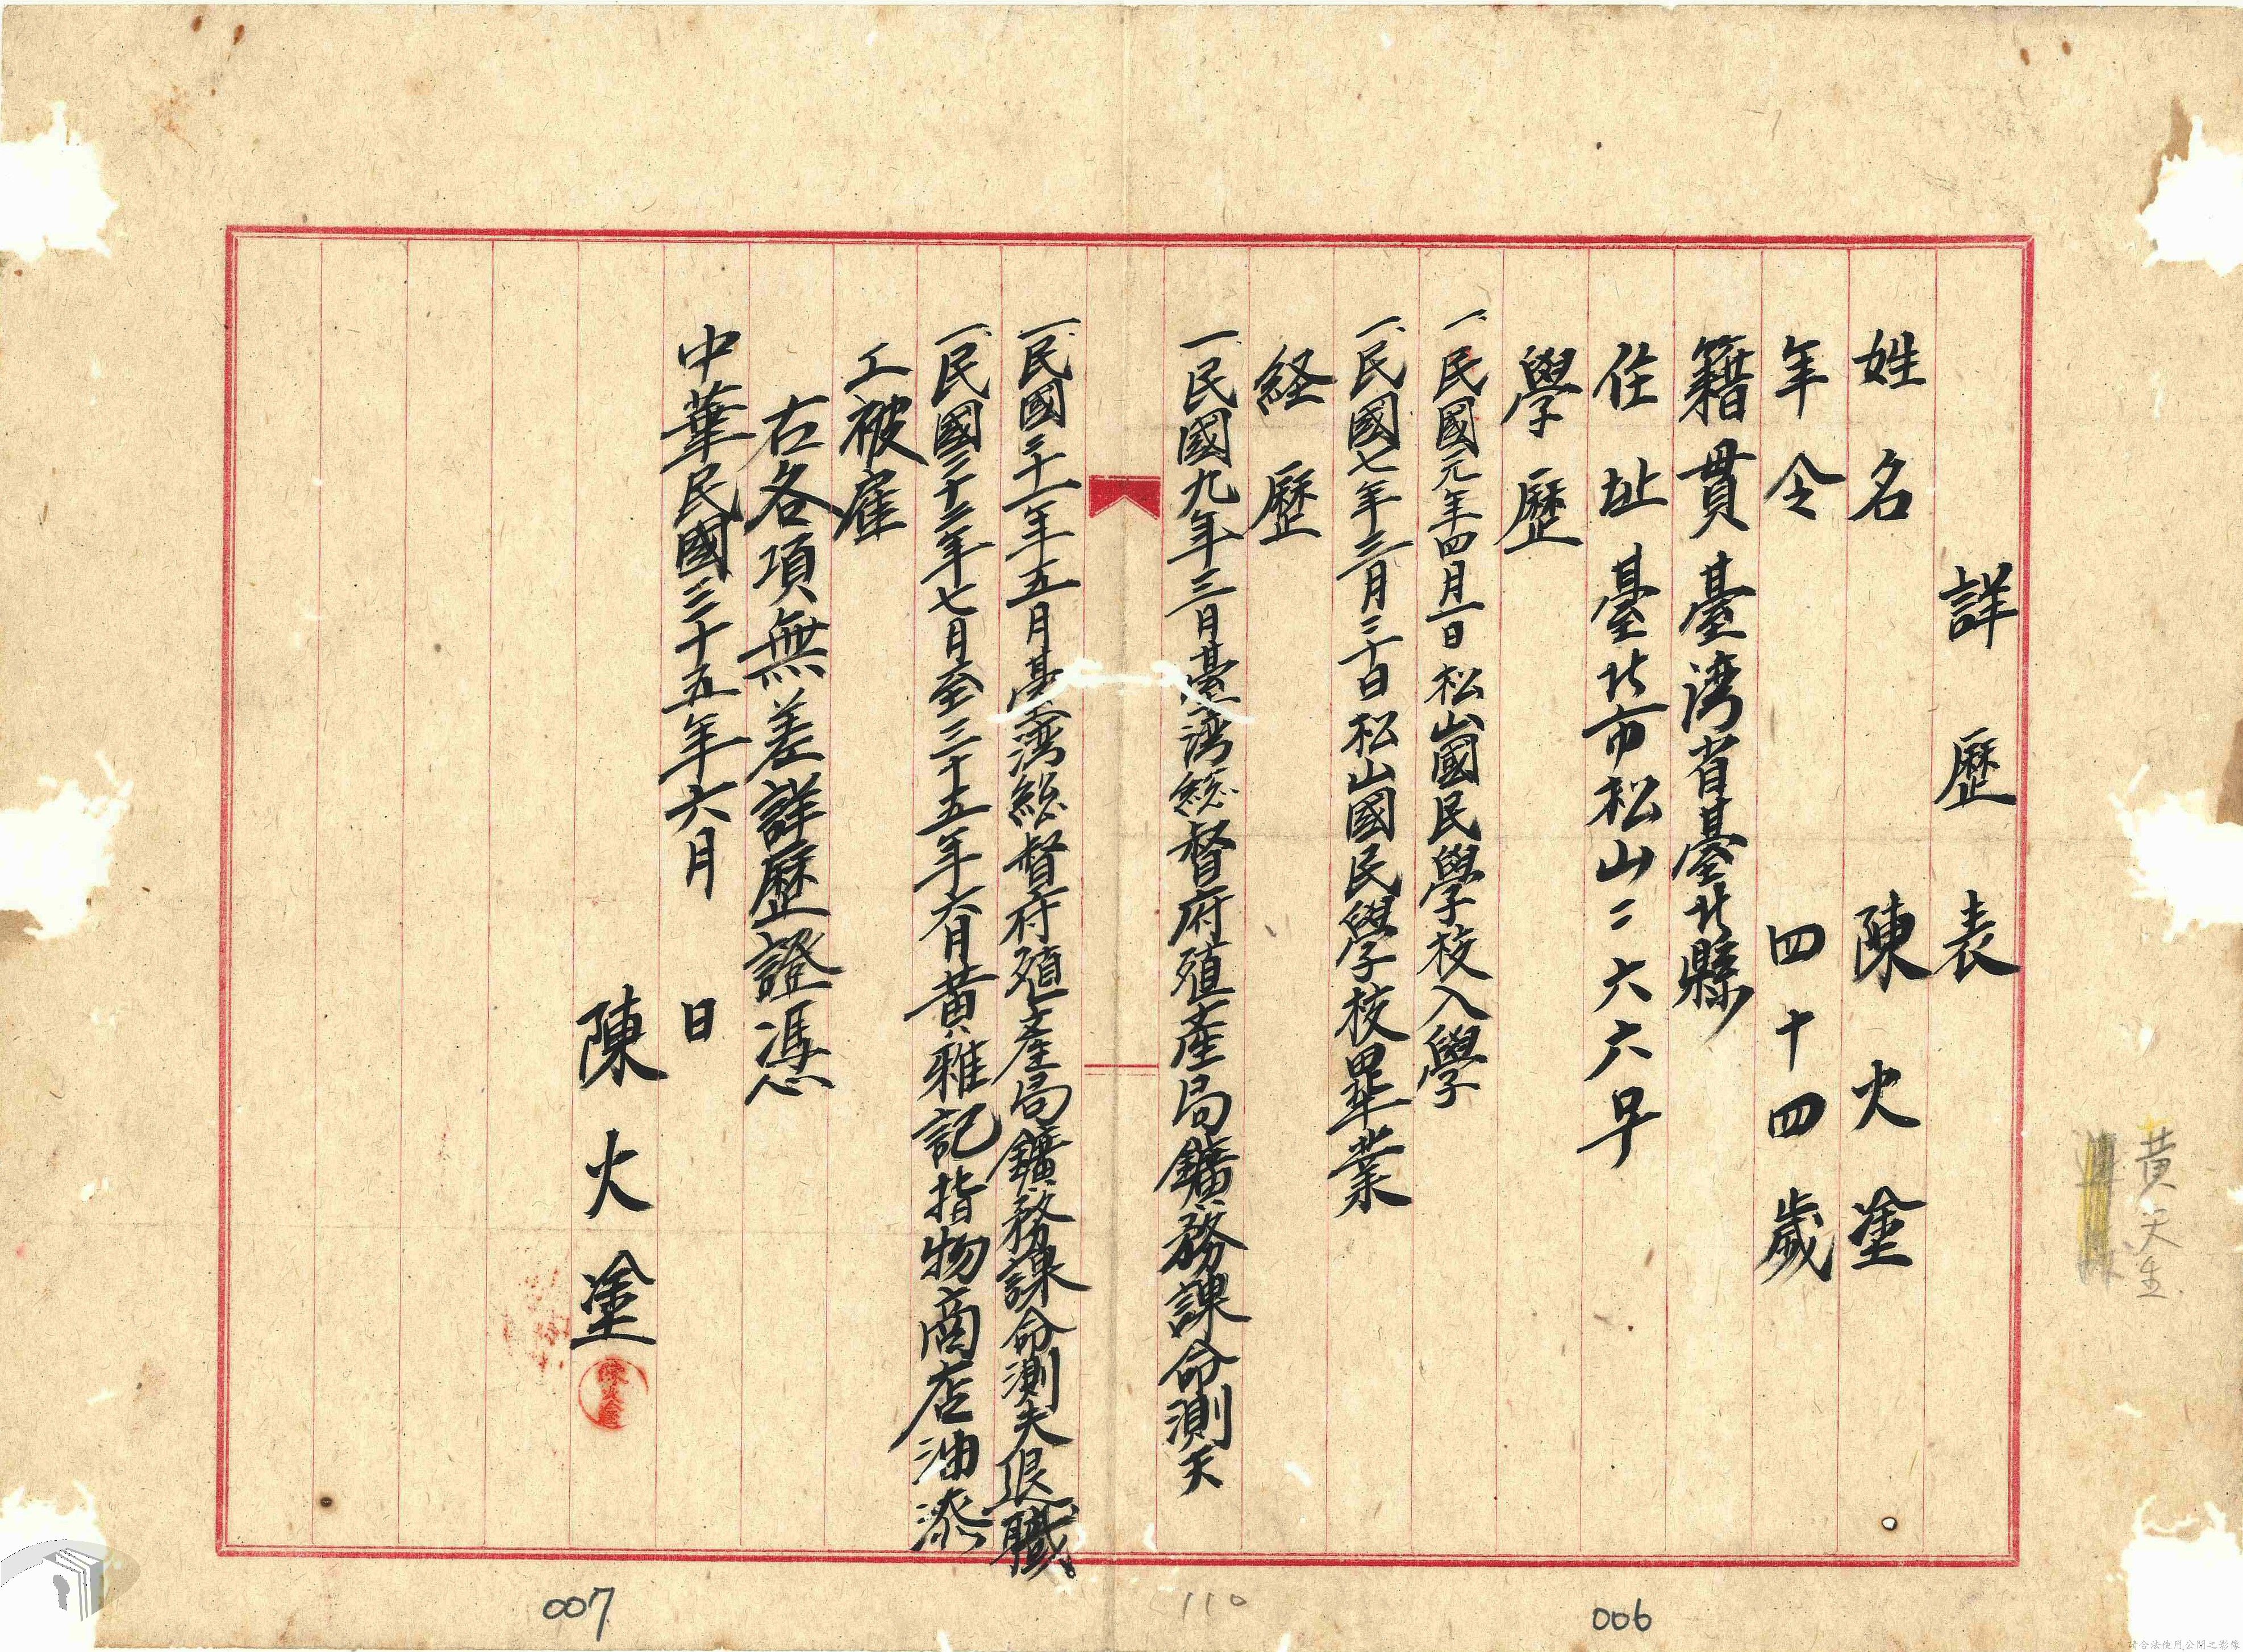 詳歷表
姓名 陳火塗
年令 四十四歲
籍貫 臺湾省臺北縣
住址 臺北市松山二六六早
學歷
一、民國元年四月一日松山國民學校入學
一、民國七年三月二十日松山國民學校畢業
経歷
一民國九年三月臺湾総督府殖產局鑛務課命測夫
一、民國三十一年五月臺湾総督府殖產局鑛務課命測夫退職
一、民國三十三年七月至三十五年六月黃雅記指物商店油漆
工被雇
右各項無差詳歷證憑
中華民國三十五年六月 日
陳火塗
黃天生
007
110
006
請合法使用公開之影像